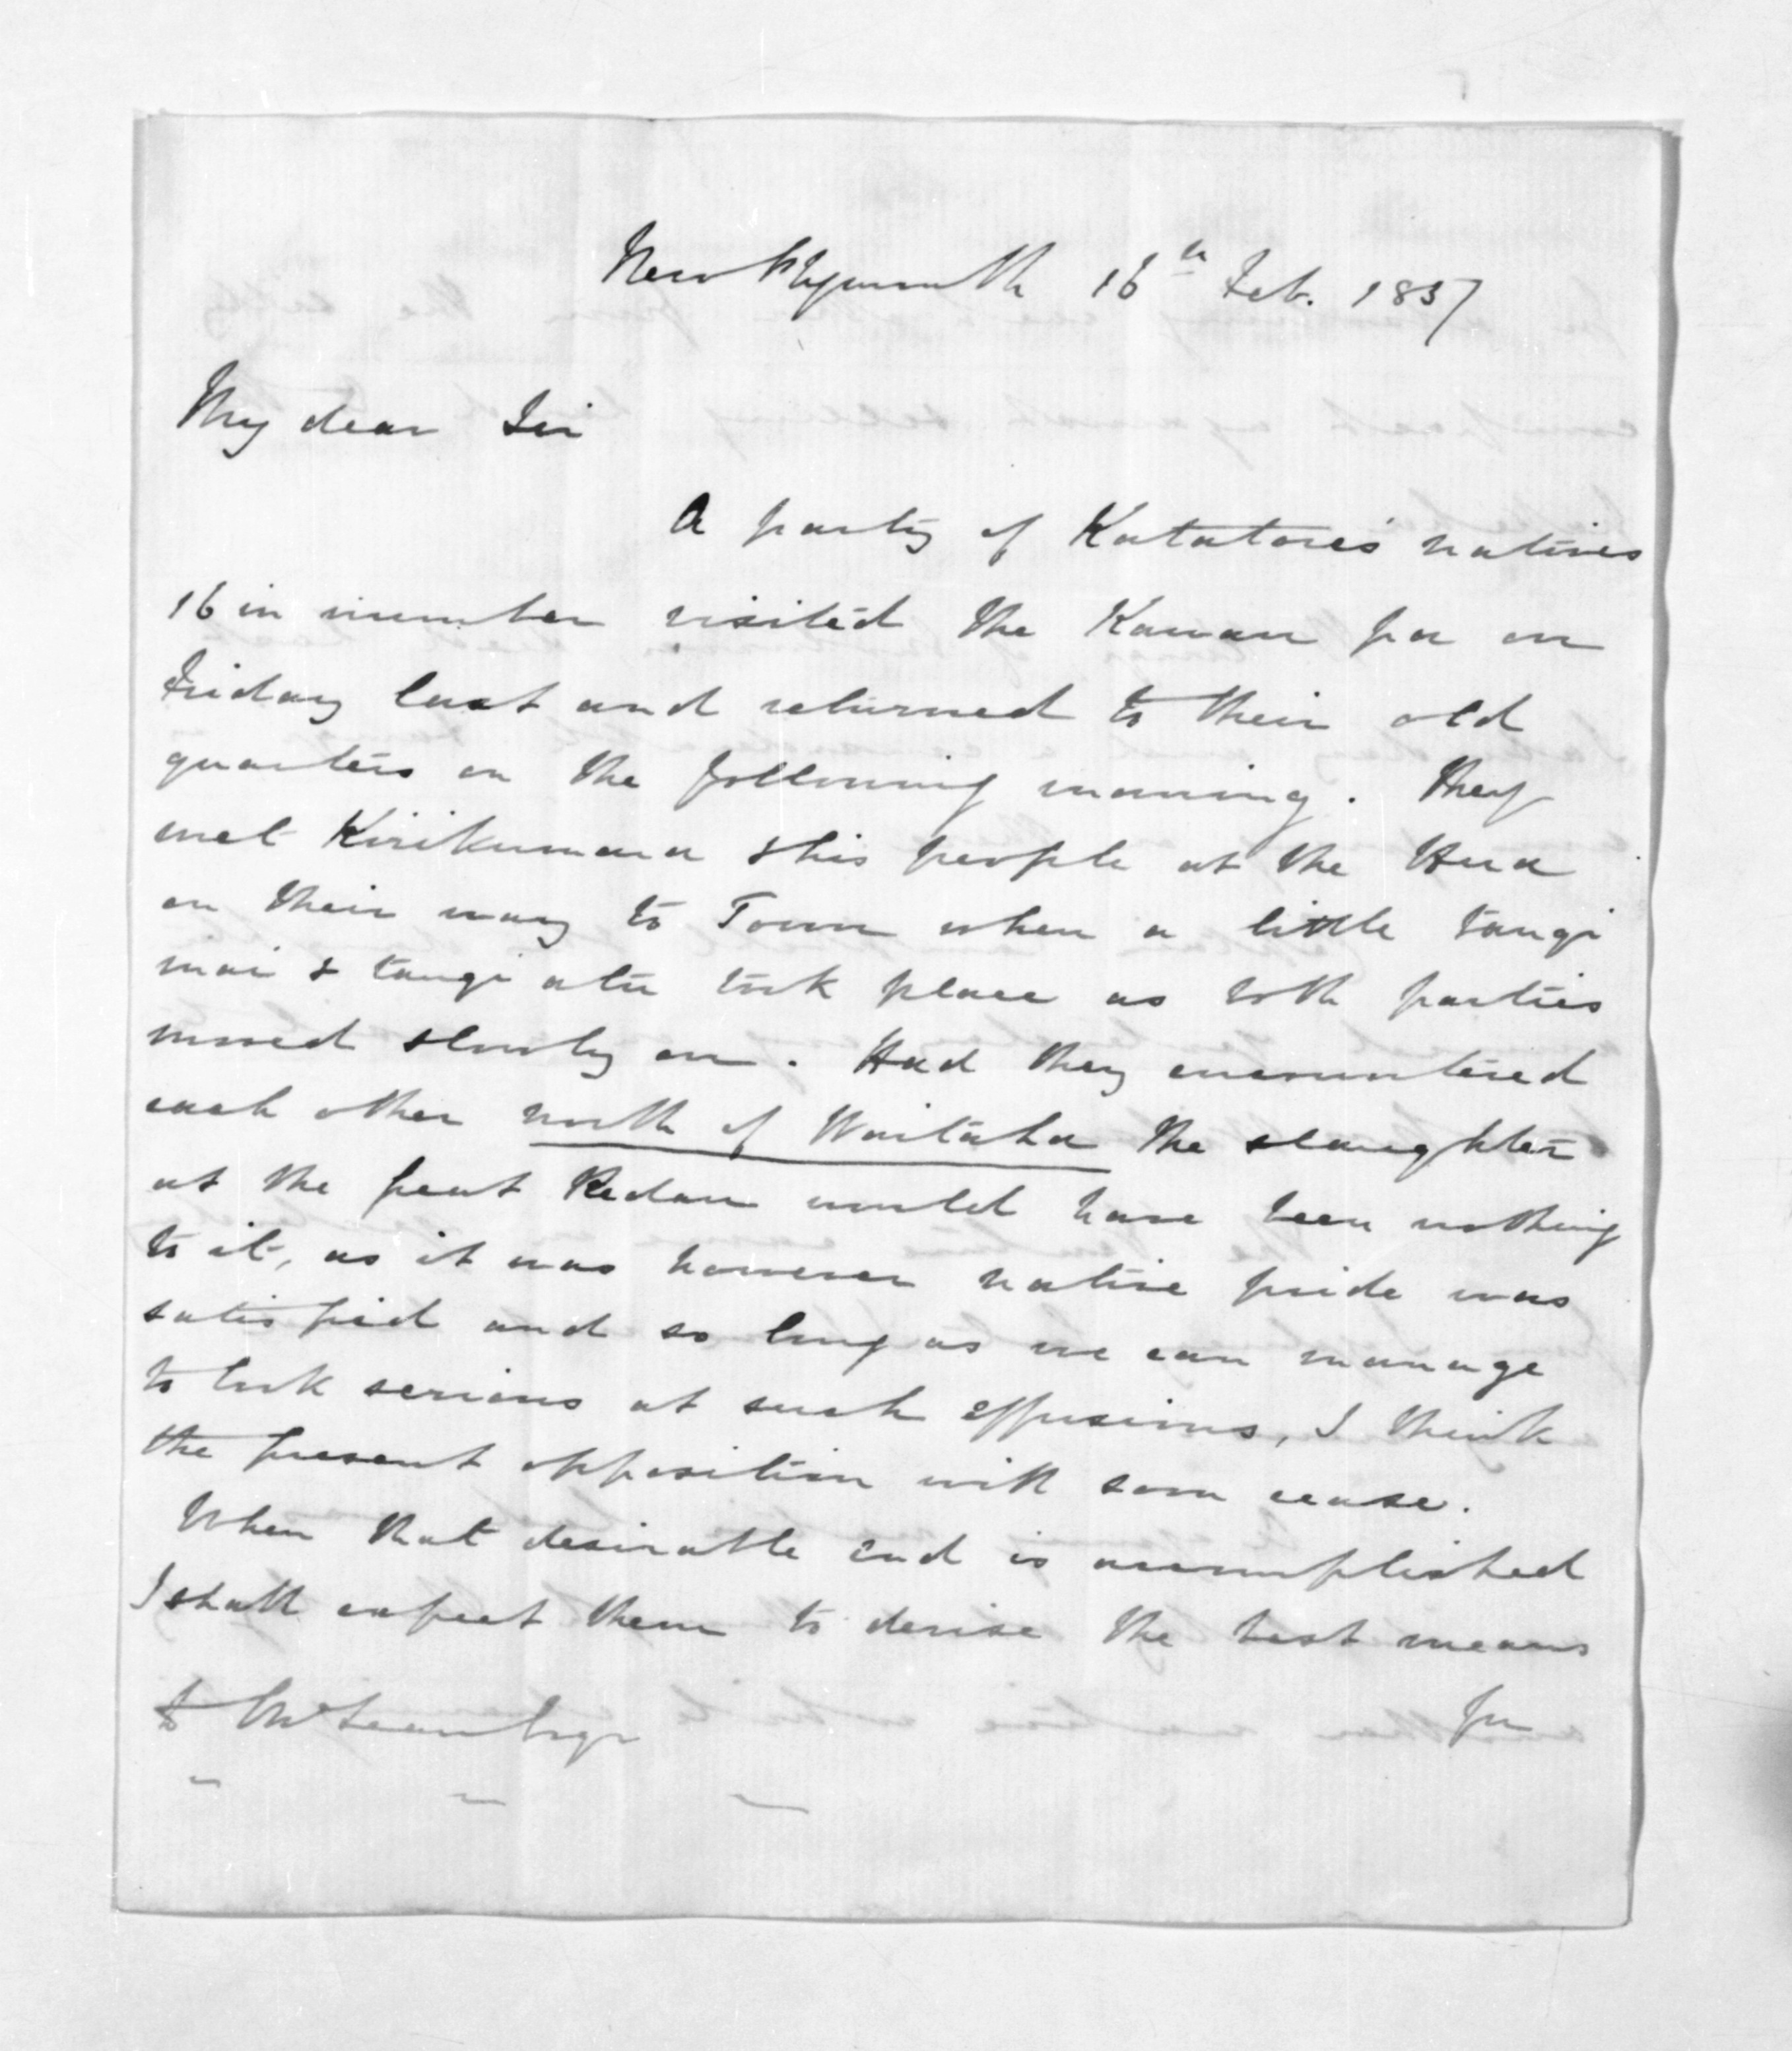 New Plymouth 16th Feb. 1857
My dear Sir
A party of Katatore's natives
16 in number visited the Kawau pa on
Friday last and returned to their old
quarters on the following morning. They
met Kirikumara & his people at the Hua
on their way to Town when a little tangi
mai & tangi atu took place as both parties
moved slowly on. Had they encountered
each other north of Waitaha the slaughter
at the great Redan would have been nothing
to it, as it was however native pride was
satisfied and so long as we can manage
to look serious at such effusions, I think
the present opposition will soon cease.
When that desirable end is accomplished
I shall expect them to devise the best means
McLean Esqr for